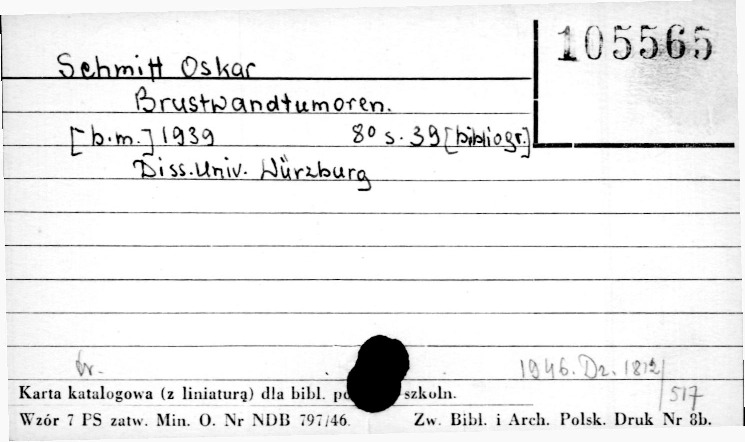 105565
Schmitt Oskar
Brustwandtumoren.
[b.m.] 1939 8⁰ s. 39 [bibliogr.]
Diss. Univ. Würzburg
tr. 1946. Dz. 1812/517
Karta katalogowa (z liniaturą) dla bibl. szkoln.
Wzór 7 PS zatw. Min. O. Nr NDB 797/46. Zw. Bibl. i Arch. Polsk. Druk Nr 8b.